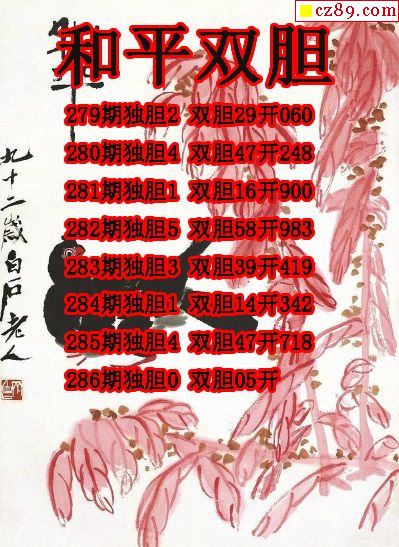 cz89.com
和平双胆
279期独胆2 双胆29开060
280期独胆4 双胆47开248
281期独胆1 双胆16开900
282期独胆5 双胆58开983
283期独胆3 双胆39开419
284期独胆1 双胆14开342
285期独胆4 双胆47开718
286期独胆0 双胆05开
九十二岁白石老人